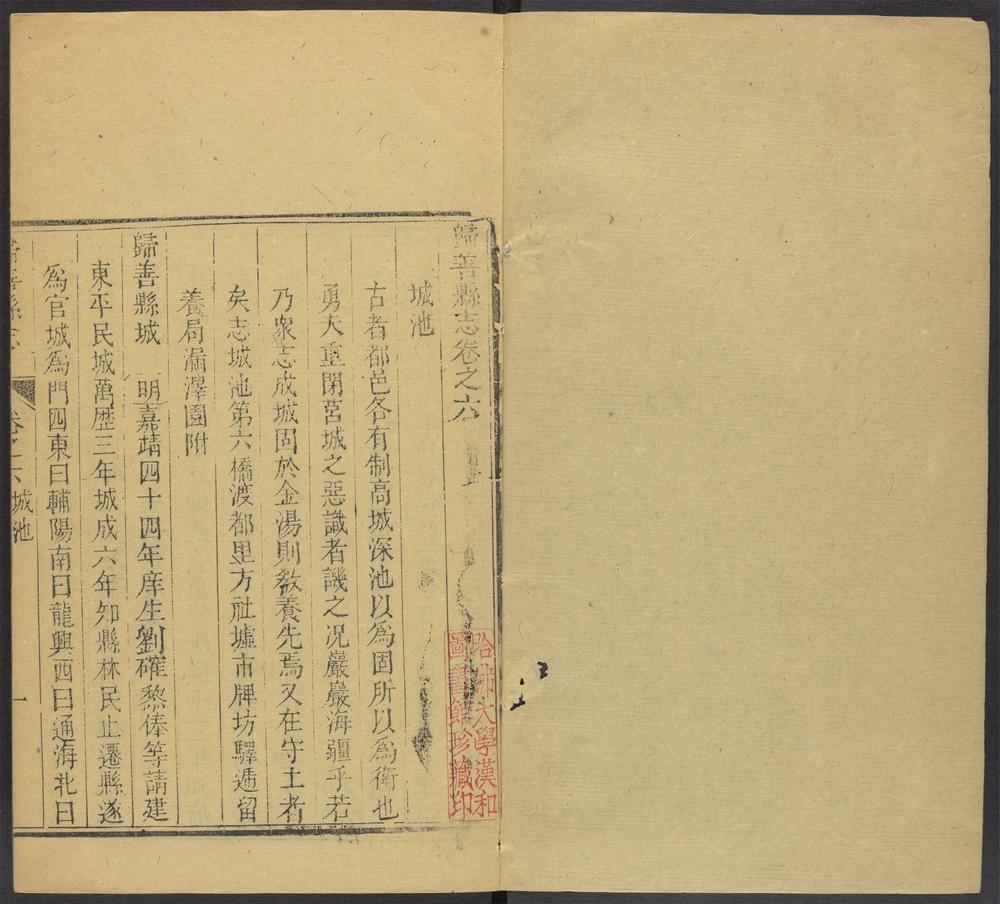 歸善縣志卷之六
城池
古者都邑各有制高城深池以為固所以為衛也
勇夫重閉莒城之惡識者譏之况嚴嚴海疆乎若
乃衆志成城固於金湯則教養先焉又在守土者
矣志城池第六橋渡都里方社墟市牌坊驛遞留
養局漏澤園附
歸善縣城 明嘉靖四十四年庠生劉確黎俸等請建
東平民城萬歷三年城成六年知縣林民止遷縣遂
為官城為門四東曰輔陽南曰龍興西曰通海北曰
歸善縣志 卷之六 城池 一
哈佛大學漢和
圖書館珍藏印